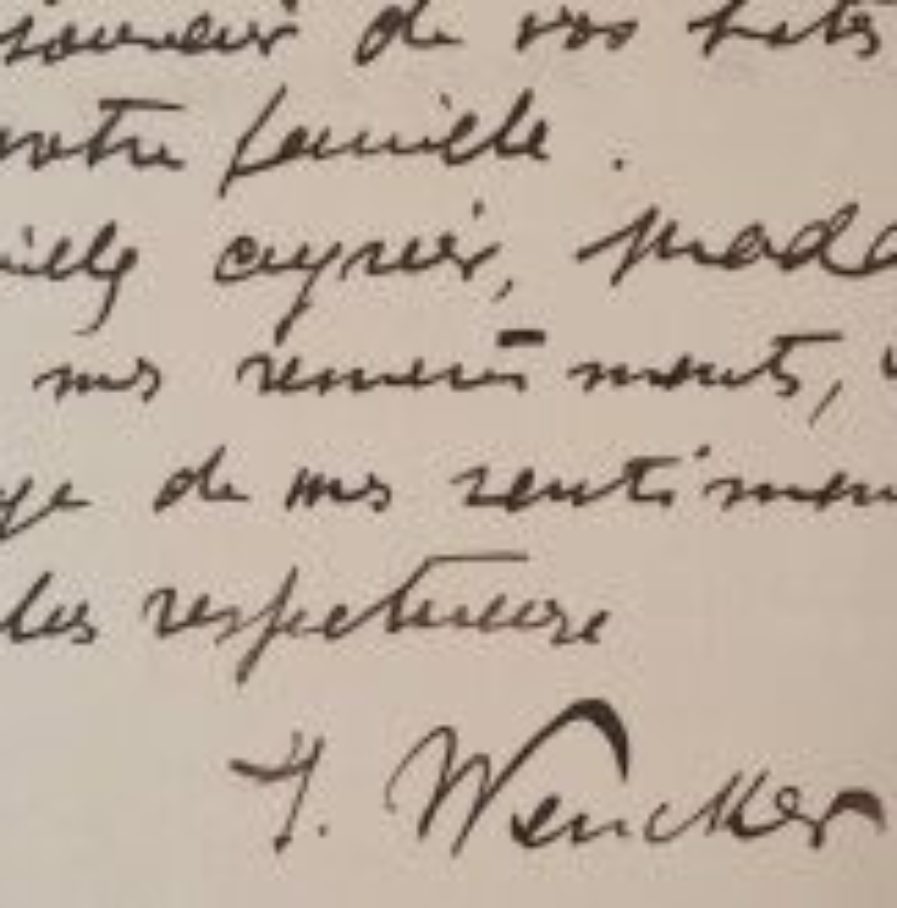 souvenir de vos
votre famille.
agréer, Mada
mes remerciements,
de mes sentimen
les respectueux
Wencker